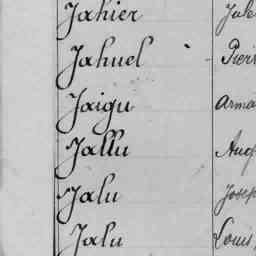 Jahier Jule
Jahuel Pierr
Jaigu Arma
Jallu Aug
Jalu Josep
Jalu Louis,